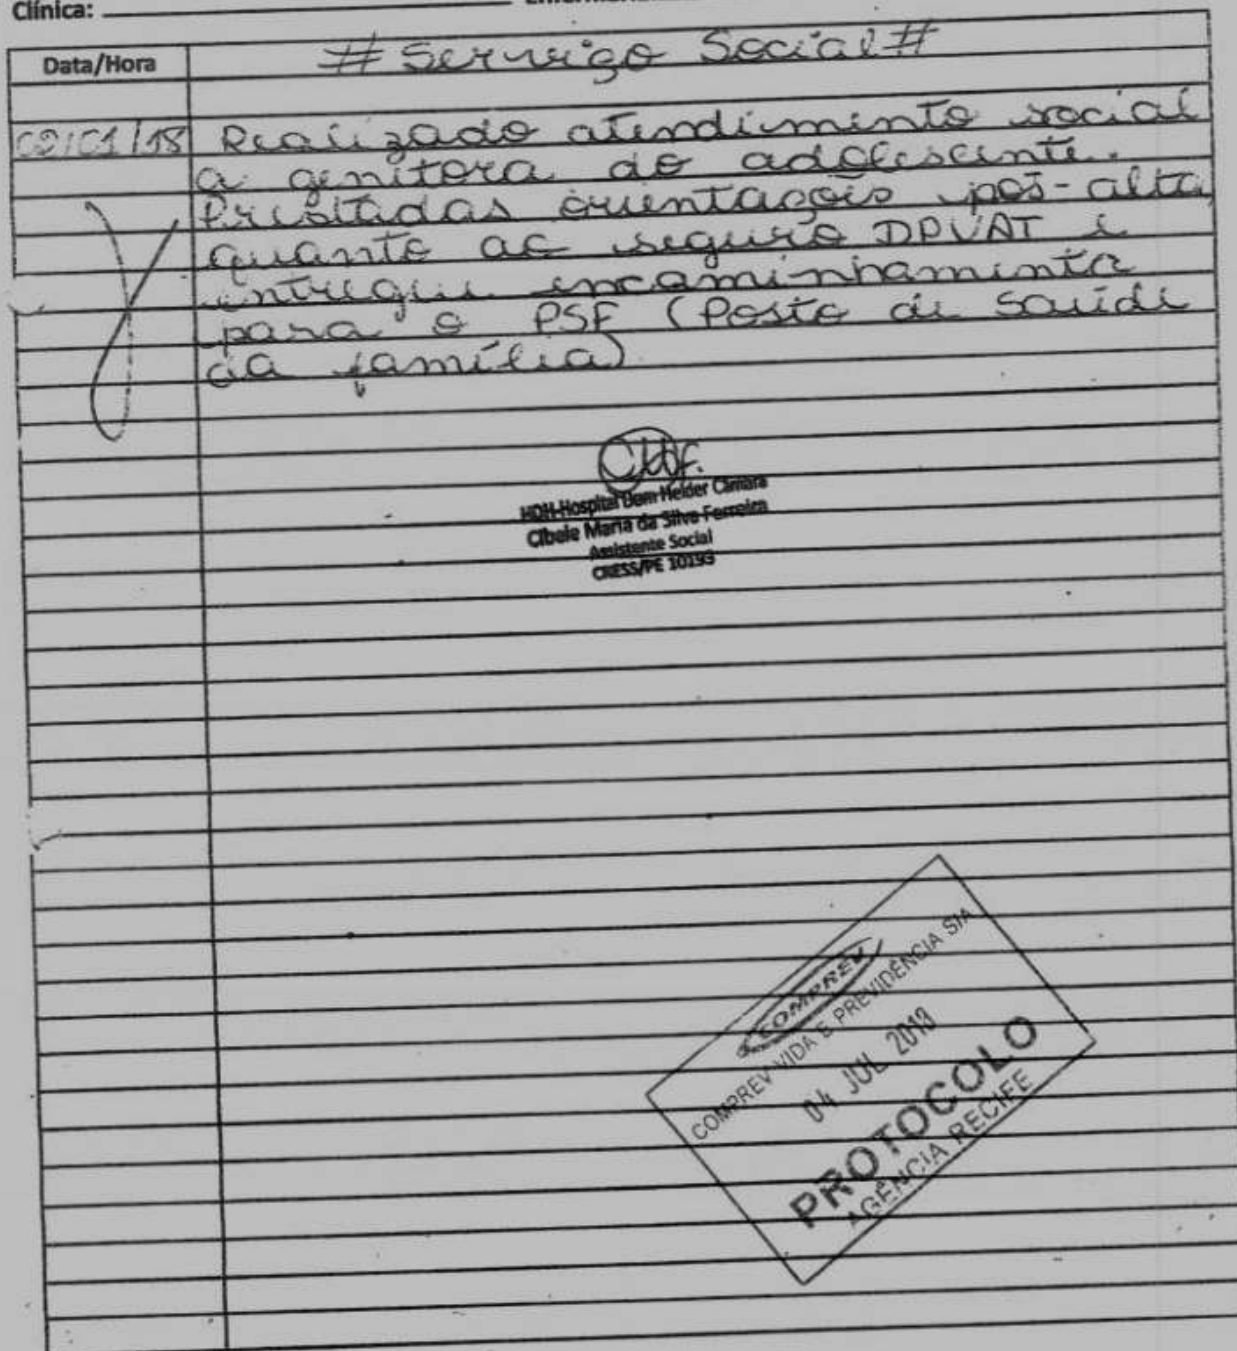 Clínica:
Data/Hora
# Serviço Social #
02/01/18 Realizado atendimento social
a genitora do adolescente.
Prestadas orientações pós-alta,
quanto ao seguro DPVAT e
entregue encaminhamento
para o PSF (Posto de Saúde
da família)
HDH-Hospital Dom Helder Câmara
Cibele Maria da Silva Ferreira
Assistente Social
CRESS/PE 10193
COMPREV
COMPREV VIDA E PREVIDÊNCIA S/A
04 JUL 2018
PROTOCOLO
AGÊNCIA RECIFE